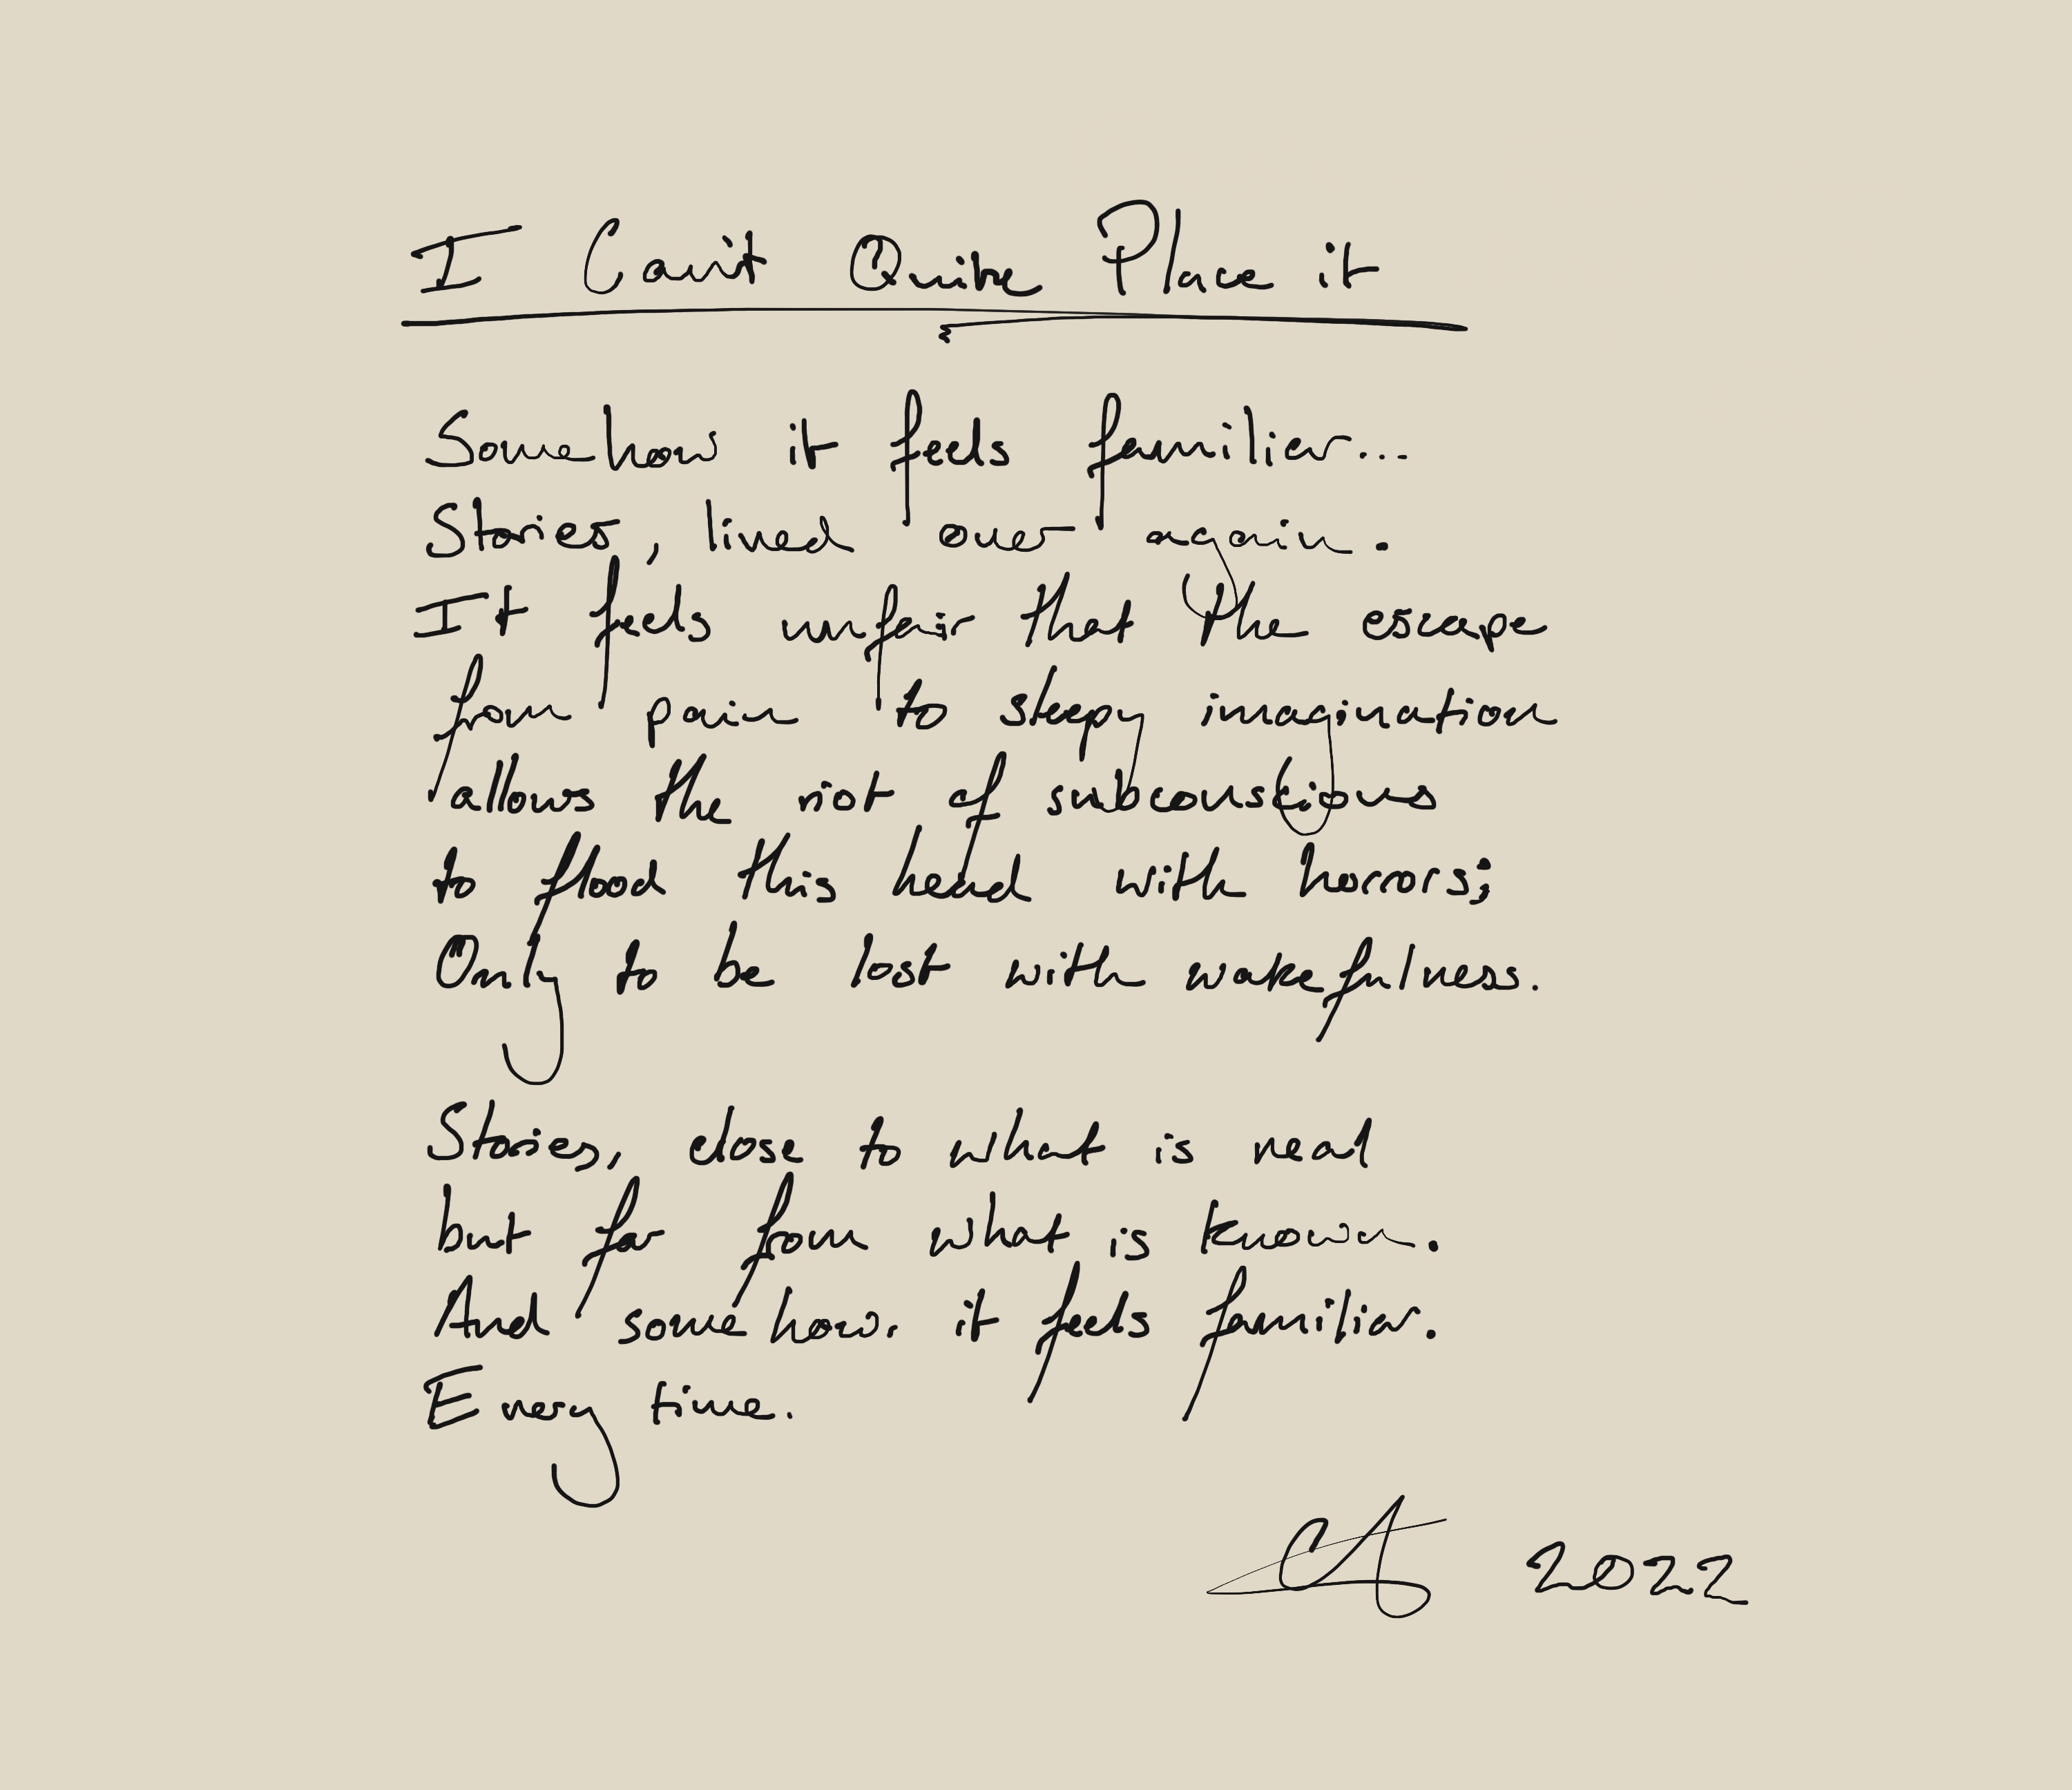 I Can't Quite Place it
Somehow it feels familiar...
Stories, lived over again.
It feels unfair that the escape
from pain to sleepy imagination
allows the riot of subconscious
to flood this head with horrors;
Only to be lost with wakefulness.
Stories, close to what is real
but far from what is known.
And somehow. it feels familiar.
Every time.
CA 2022